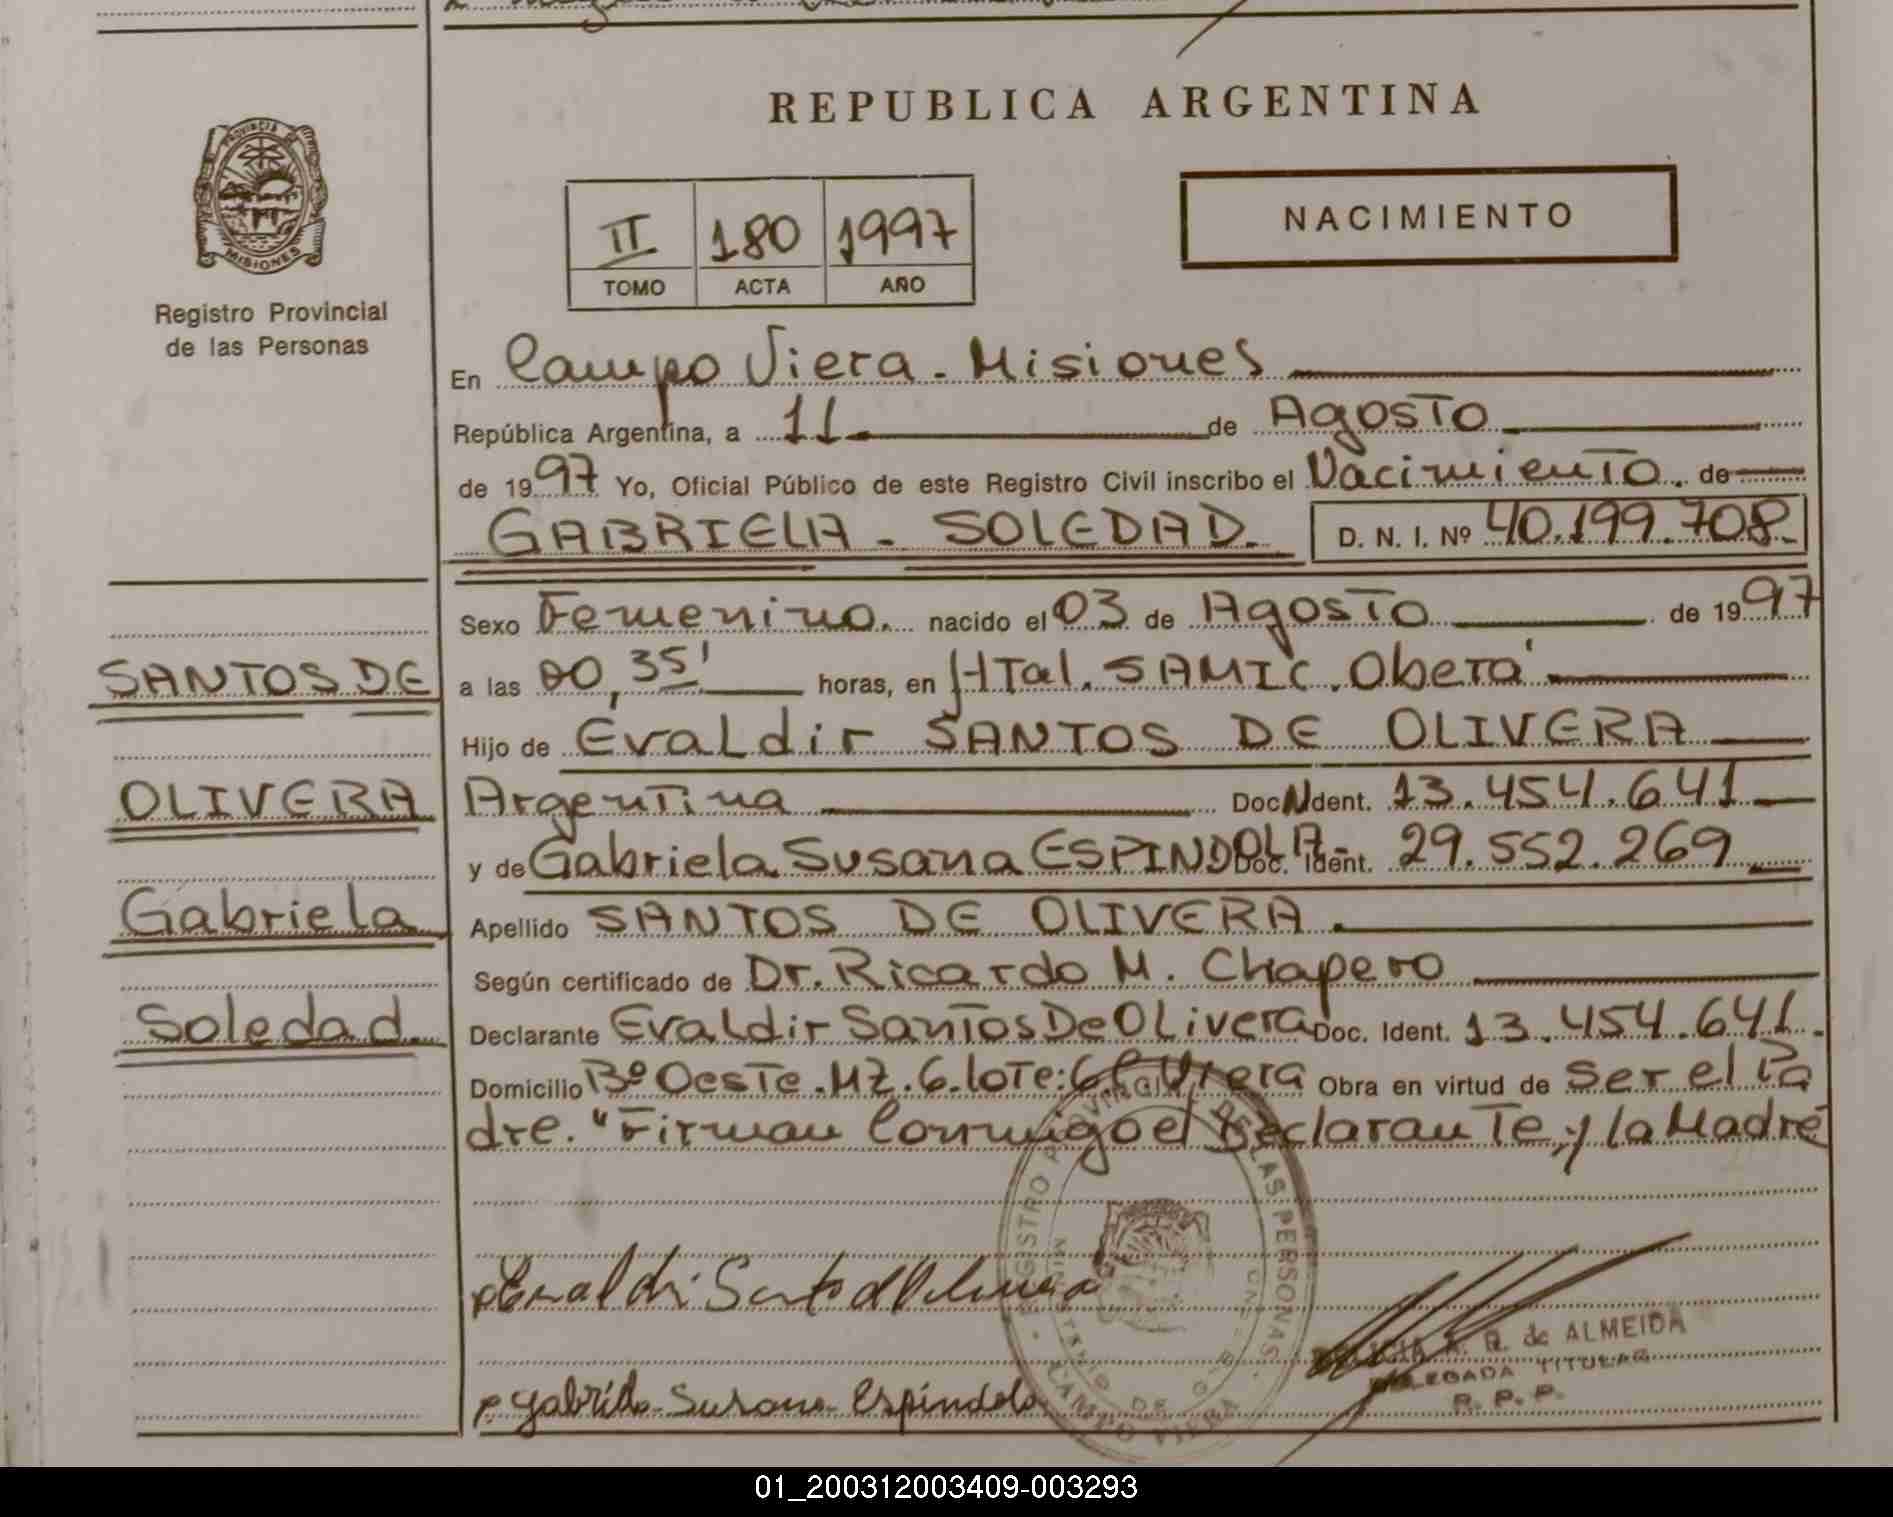 REPUBLICA ARGENTINA
PROVINCIA DE
MISIONES
Registro Provincial
de las Personas
II 180 1997
TOMO ACTA AÑO
NACIMIENTO
En Campo Viera - Misiones
República Argentina, a 11 de Agosto
de 1997 Yo, Oficial Público de este Registro Civil inscribo el Nacimiento. de
GABRIELA - SOLEDAD. D. N. I. Nº 40.199.708.
Sexo Femenino. nacido el 03 de Agosto de 1997
SANTOS DE
a las 00,35' horas, en HTal. SAMIC. Oberá
Hijo de Evaldir SANTOS DE OLIVERA
OLIVERA
Argentina Doc. Ident. 13.454.641
y de Gabriela Susana ESPINDOLA- Doc. Ident. 29.552.269
Gabriela
Apellido SANTOS DE OLIVERA.
Según certificado de Dr. Ricardo M. Chapero
Soledad.
Declarante Evaldir Santos De Olivera Doc. Ident. 13.454.641.
Domicilio Bº Oeste. MZ. 6. lote: 6 C. Viera Obra en virtud de ser el Pa
dre. "Firman Conmigo el Declarante y la Madre
REGISTRO PROVINCIAL DE LAS PERSONAS
MINISTERIO DE GOBIERNO
CAMPO VIERA
Evaldir Santos d Olivera
A. R. de ALMEIDA
DELEGADA TITULAR
R. P. P.
Gabriela Susana Espindola
01_200312003409-003293